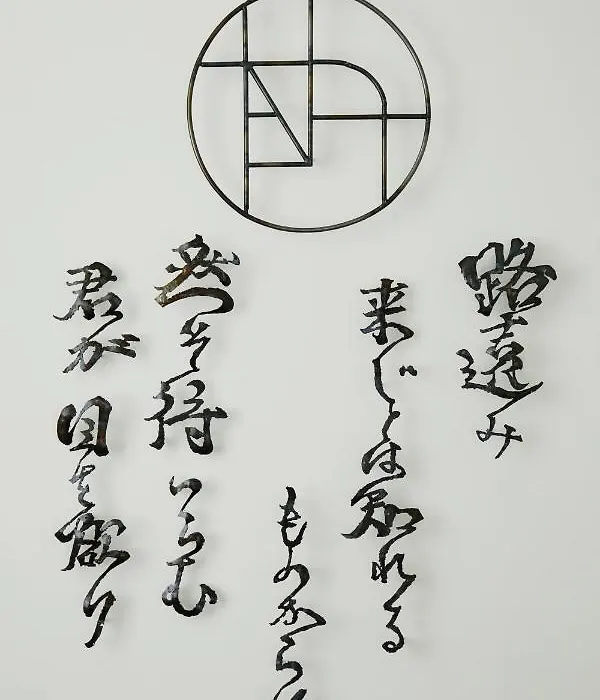 路遠み
来じとは知れる
ものから
然そ待つらむ
君が目を欲り